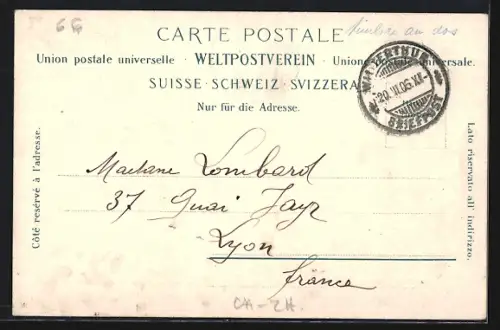 6G
CARTE POSTALE
Timbre au dos
Union postale universelle · WELTPOSTVEREIN · Unione postale universale.
SUISSE · SCHWEIZ · SVIZZERA
Nur für die Adresse.
WINTERTHUR
20.VI.05.XII-
BRIEFPOST
Côté reservé à l'adresse.
Lato riservato all' indirizzo.
Madame Lombard
37 Quai Jayr
Lyon
France
CH-ZH.